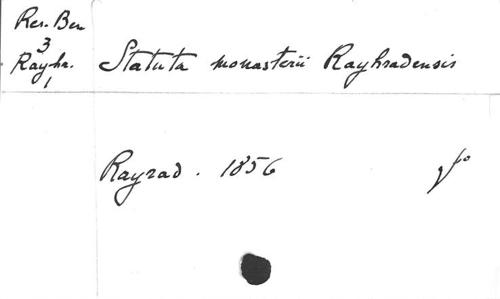 Res. Ben
3
Rayhr.
1
Statuta monasterii Rayhradensis
Rayrad. 1856
fo